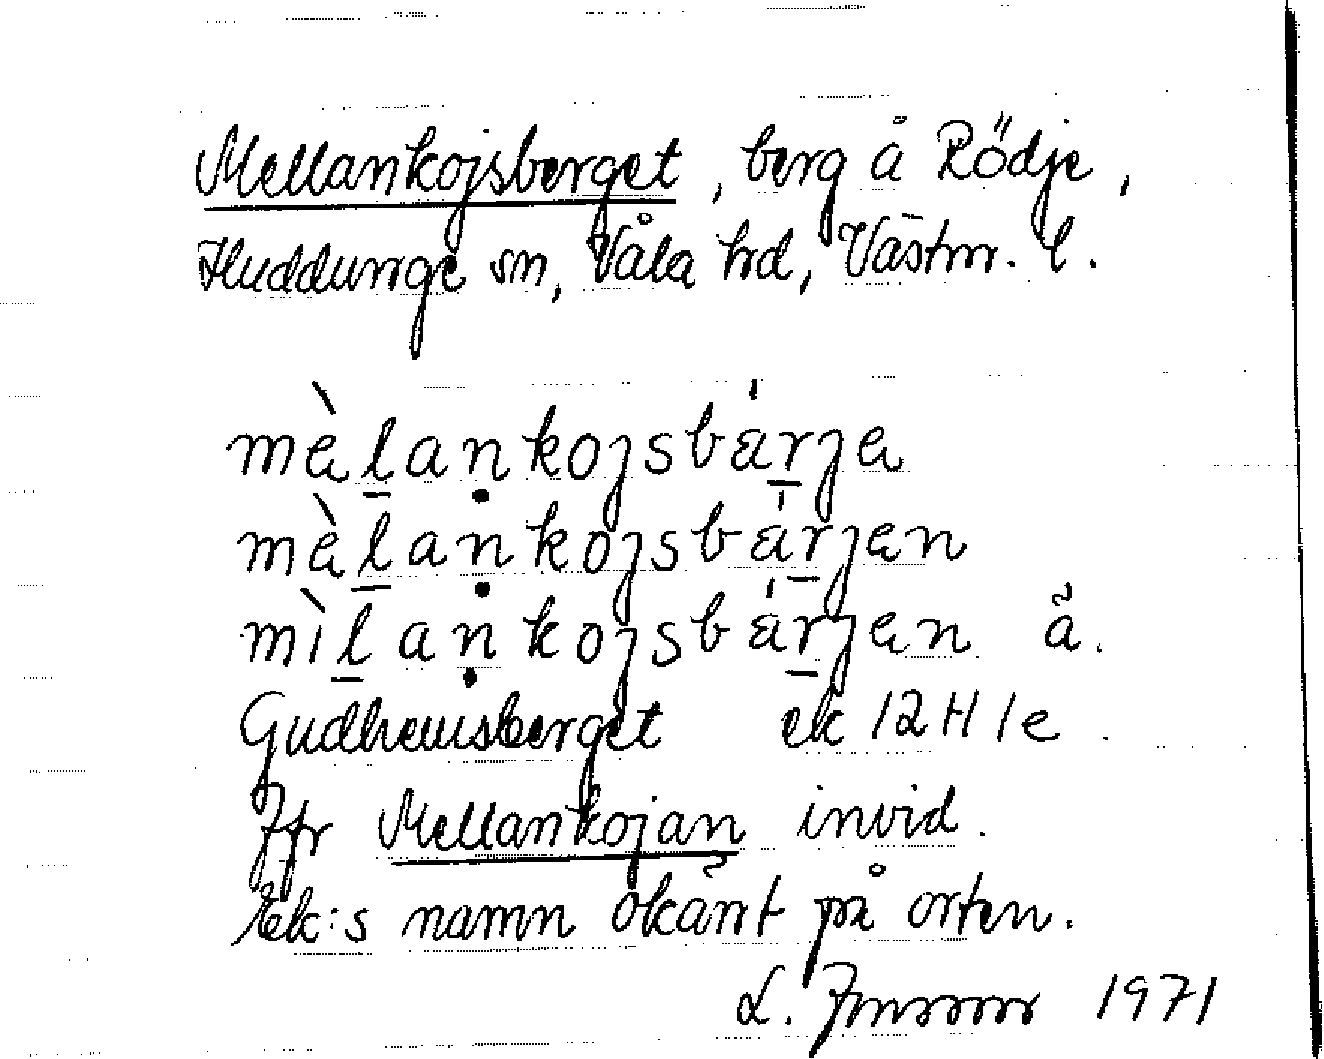 Mellankojsberget, berg å Rödje,
Huddunge sn, Våla hd, Västm. l.
mèl̲aṇkojsbä́r̲ja
mèl̲aṇkojsbä́r̲jen
mìl̲aṇkojsbä́r̲jen ä.
Gudhemsberget ek 12H 1e.
Jfr Mellankojan invid.
Ek:s namn okänt på orten.
L. Jonsson 1971